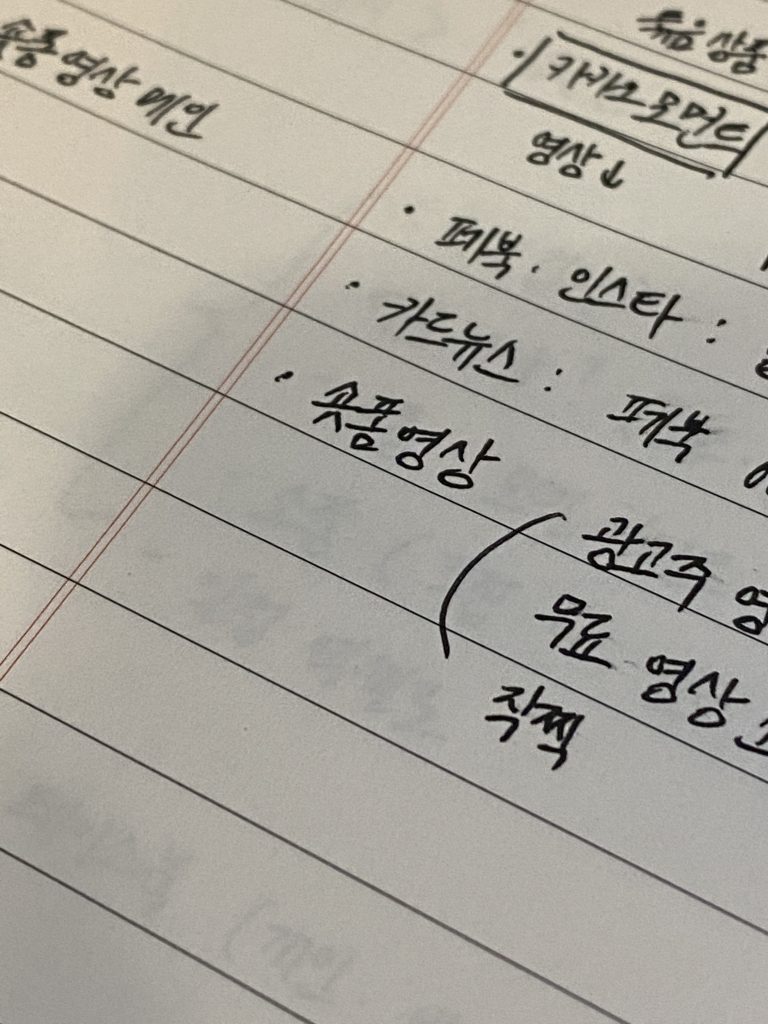 숏폼영상 메인
묶음상품
· 카카오모먼트
영상↓
· 페북·인스타 :
· 카드뉴스 : 페북
· 숏폼영상
( 광고주 영
무료 영상
직찍